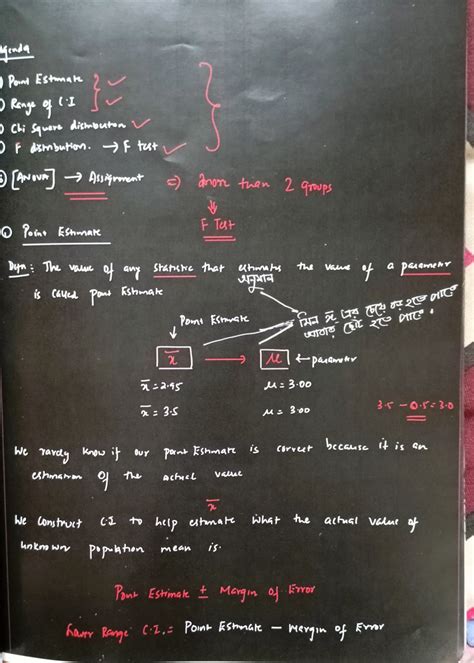 Agenda
① Point Estimate
② Range of C.I
③ Chi Square distribution
④ F distribution. → F test
⑤ [ANOVA] → Assignment ⇒ more than 2 groups
↓
F Test
① Point Estimate
Defn: The value of any statistic that estimates the value of a parameter
অনুমান
is called Point Estimate
↓ Point Estimate
x̄ → μ ← parameter
x̄ = 2.95 μ = 3.00
x̄ = 3.5 μ = 3.00 3.5 - 0.5 = 3.0
We rarely know if our point Estimate is correct because it is an
estimation Of the actual value
x̄
We construct C.I to help estimate what the actual value of
unknown population mean is.
Point Estimate ± Margin of Error
Lower Range C.I. = Point Estimate - Margin of Error